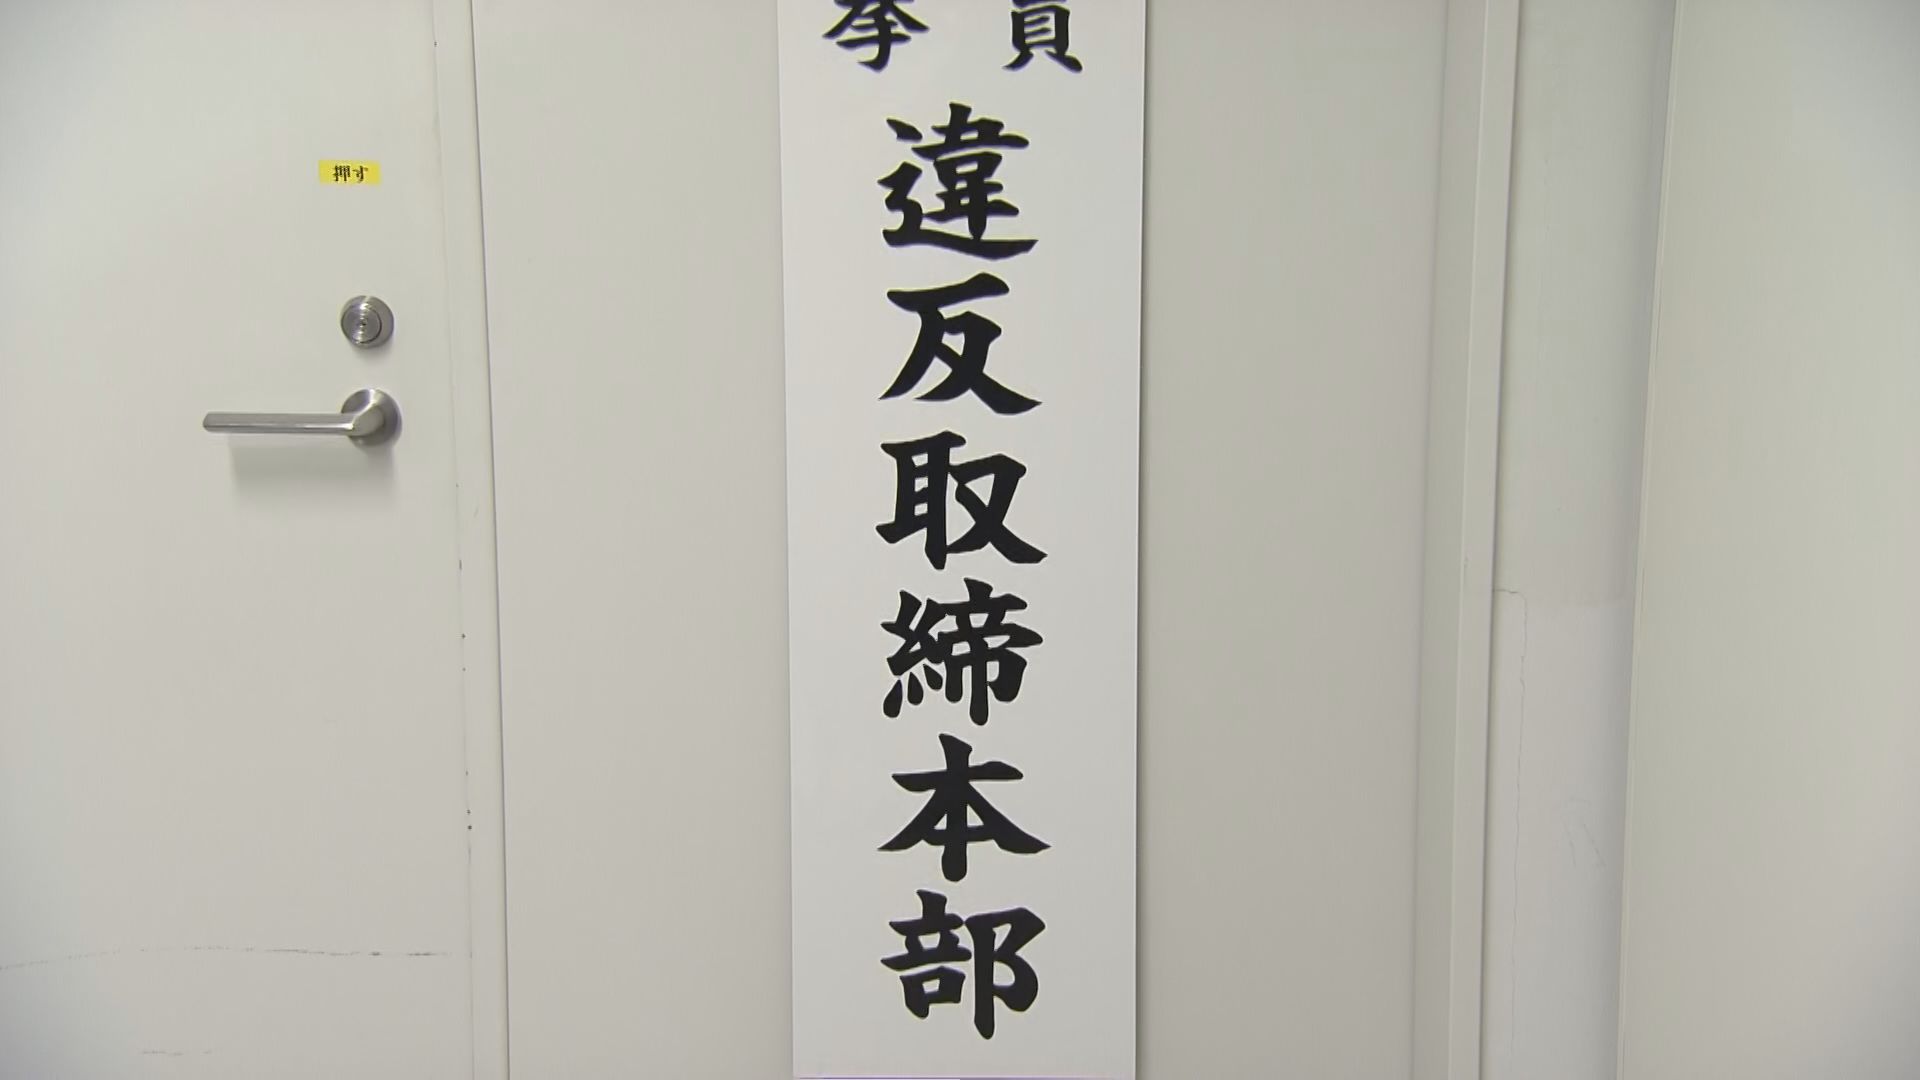 員
挙
違反取締本部
押す